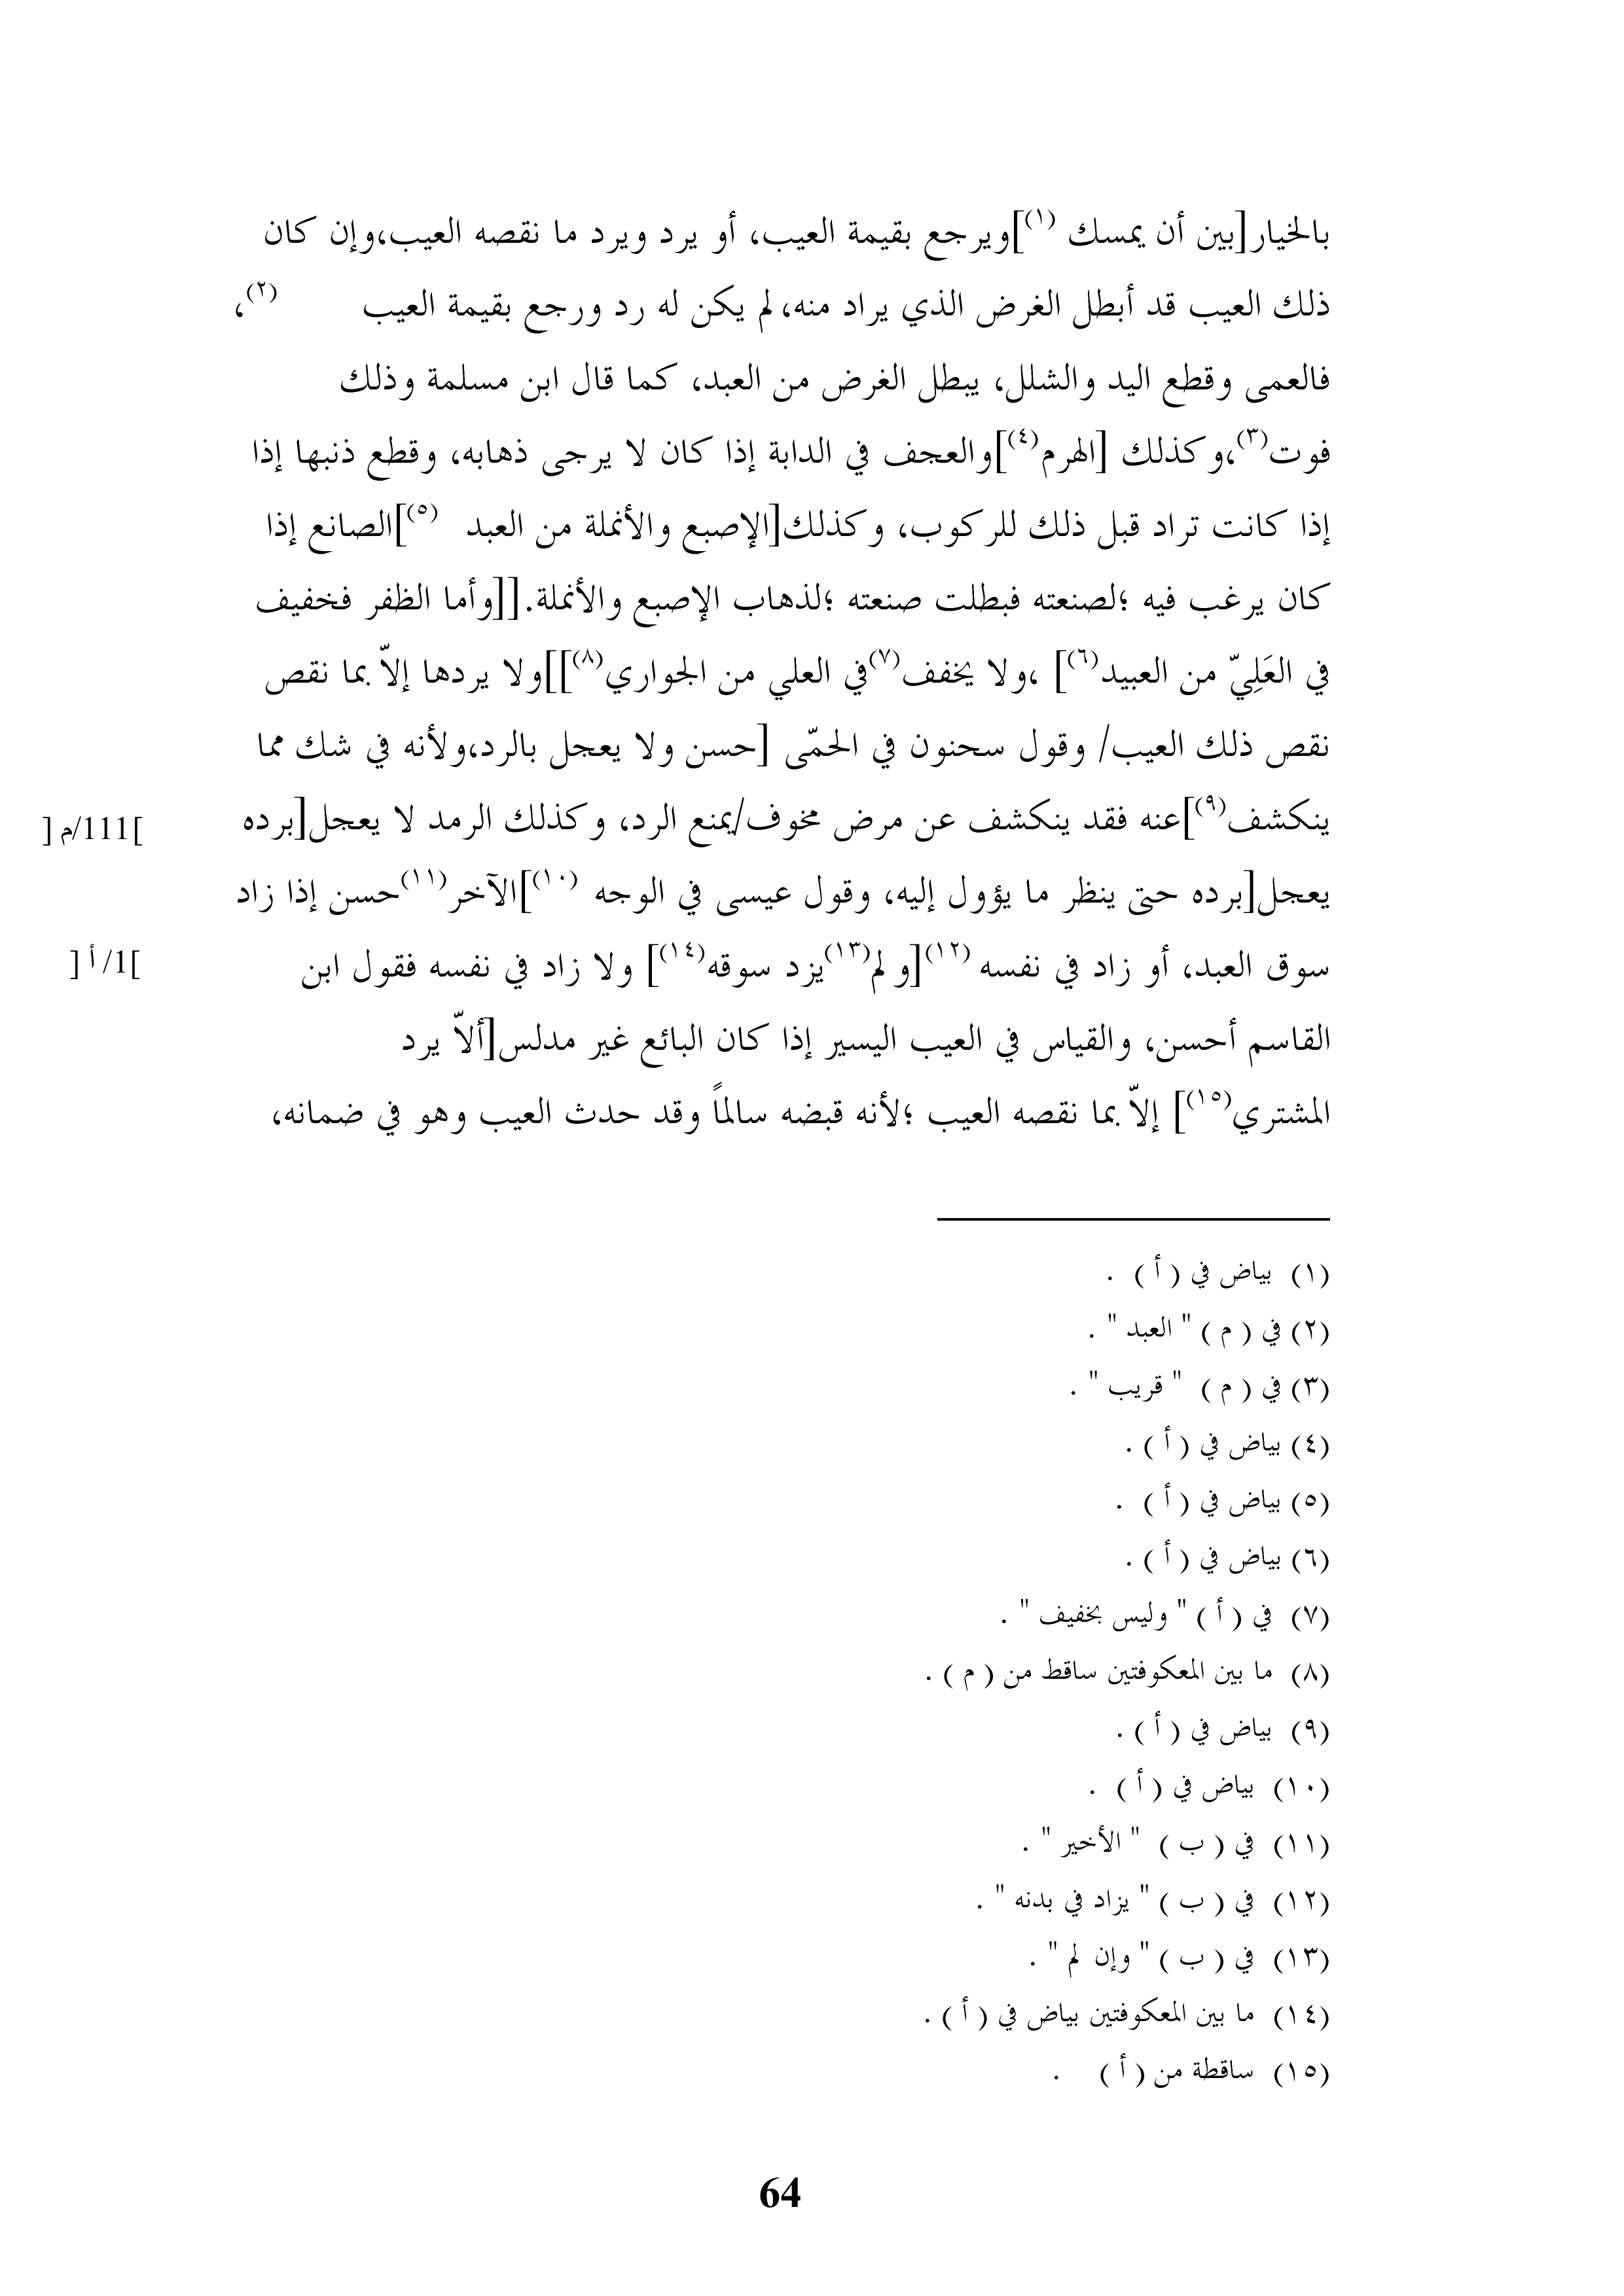 بالخيار[بين أن يمسك (١)]ويرجع بقيمة العيب، أو يرد ويرد ما نقصه العيب،وإن كان
ذلك العيب قد أبطل الغرض الذي يراد منه،لم يكن له رد ورجع بقيمة العيب (٢)،
فالعمى وقطع اليد والشلل، يبطل الغرض من العبد، كما قال ابن مسلمة وذلك
فوت(٣)،وكذلك [الهرم(٤)]والعجف في الدابة إذا كان لا يرجى ذهابه، وقطع ذنبها إذا
إذا كانت تراد قبل ذلك للركوب، وكذلك[الإصبع والأنملة من العبد (٥)]الصانع إذا
كان يرغب فيه ؛لصنعته فبطلت صنعته ؛لذهاب الإصبع والأنملة.[[وأما الظفر فخفيف
في العَلِيّ من العبيد(٦)] ،ولا يخفف(٧)في العلي من الجواري(٨)]]ولا يردها إلاّ بما نقص
نقص ذلك العيب/ وقول سحنون في الحمّى [حسن ولا يعجل بالرد،ولأنه في شك مما
ينكشف(٩)]عنه فقد ينكشف عن مرض مخوف/يمنع الرد، وكذلك الرمد لا يعجل[برده
[111/م ]
يعجل[برده حتى ينظر ما يؤول إليه، وقول عيسى في الوجه (١٠)]الآخر(١١)حسن إذا زاد
سوق العبد، أو زاد في نفسه (١٢)[و لم(١٣)يزد سوقه(١٤)] ولا زاد في نفسه فقول ابن
[1/ أ ]
القاسم أحسن، والقياس في العيب اليسير إذا كان البائع غير مدلس[ألاّ يرد
المشتري(١٥)] إلاّ بما نقصه العيب ؛لأنه قبضه سالماً وقد حدث العيب وهو في ضمانه،
(١) بياض في ( أ ) .
(٢) في ( م ) " العبد " .
(٣) في ( م ) " قريب " .
(٤) بياض في ( أ ) .
(٥) بياض في ( أ ) .
(٦) بياض في ( أ ) .
(٧) في ( أ ) " وليس بخفيف " .
(٨) ما بين المعكوفتين ساقط من ( م ) .
(٩) بياض في ( أ ) .
(١٠) بياض في ( أ ) .
(١١) في ( ب ) " الأخير " .
(١٢) في ( ب ) " يزاد في بدنه " .
(١٣) في ( ب ) " وإن لم " .
(١٤) ما بين المعكوفتين بياض في ( أ ) .
(١٥) ساقطة من ( أ ) .
64